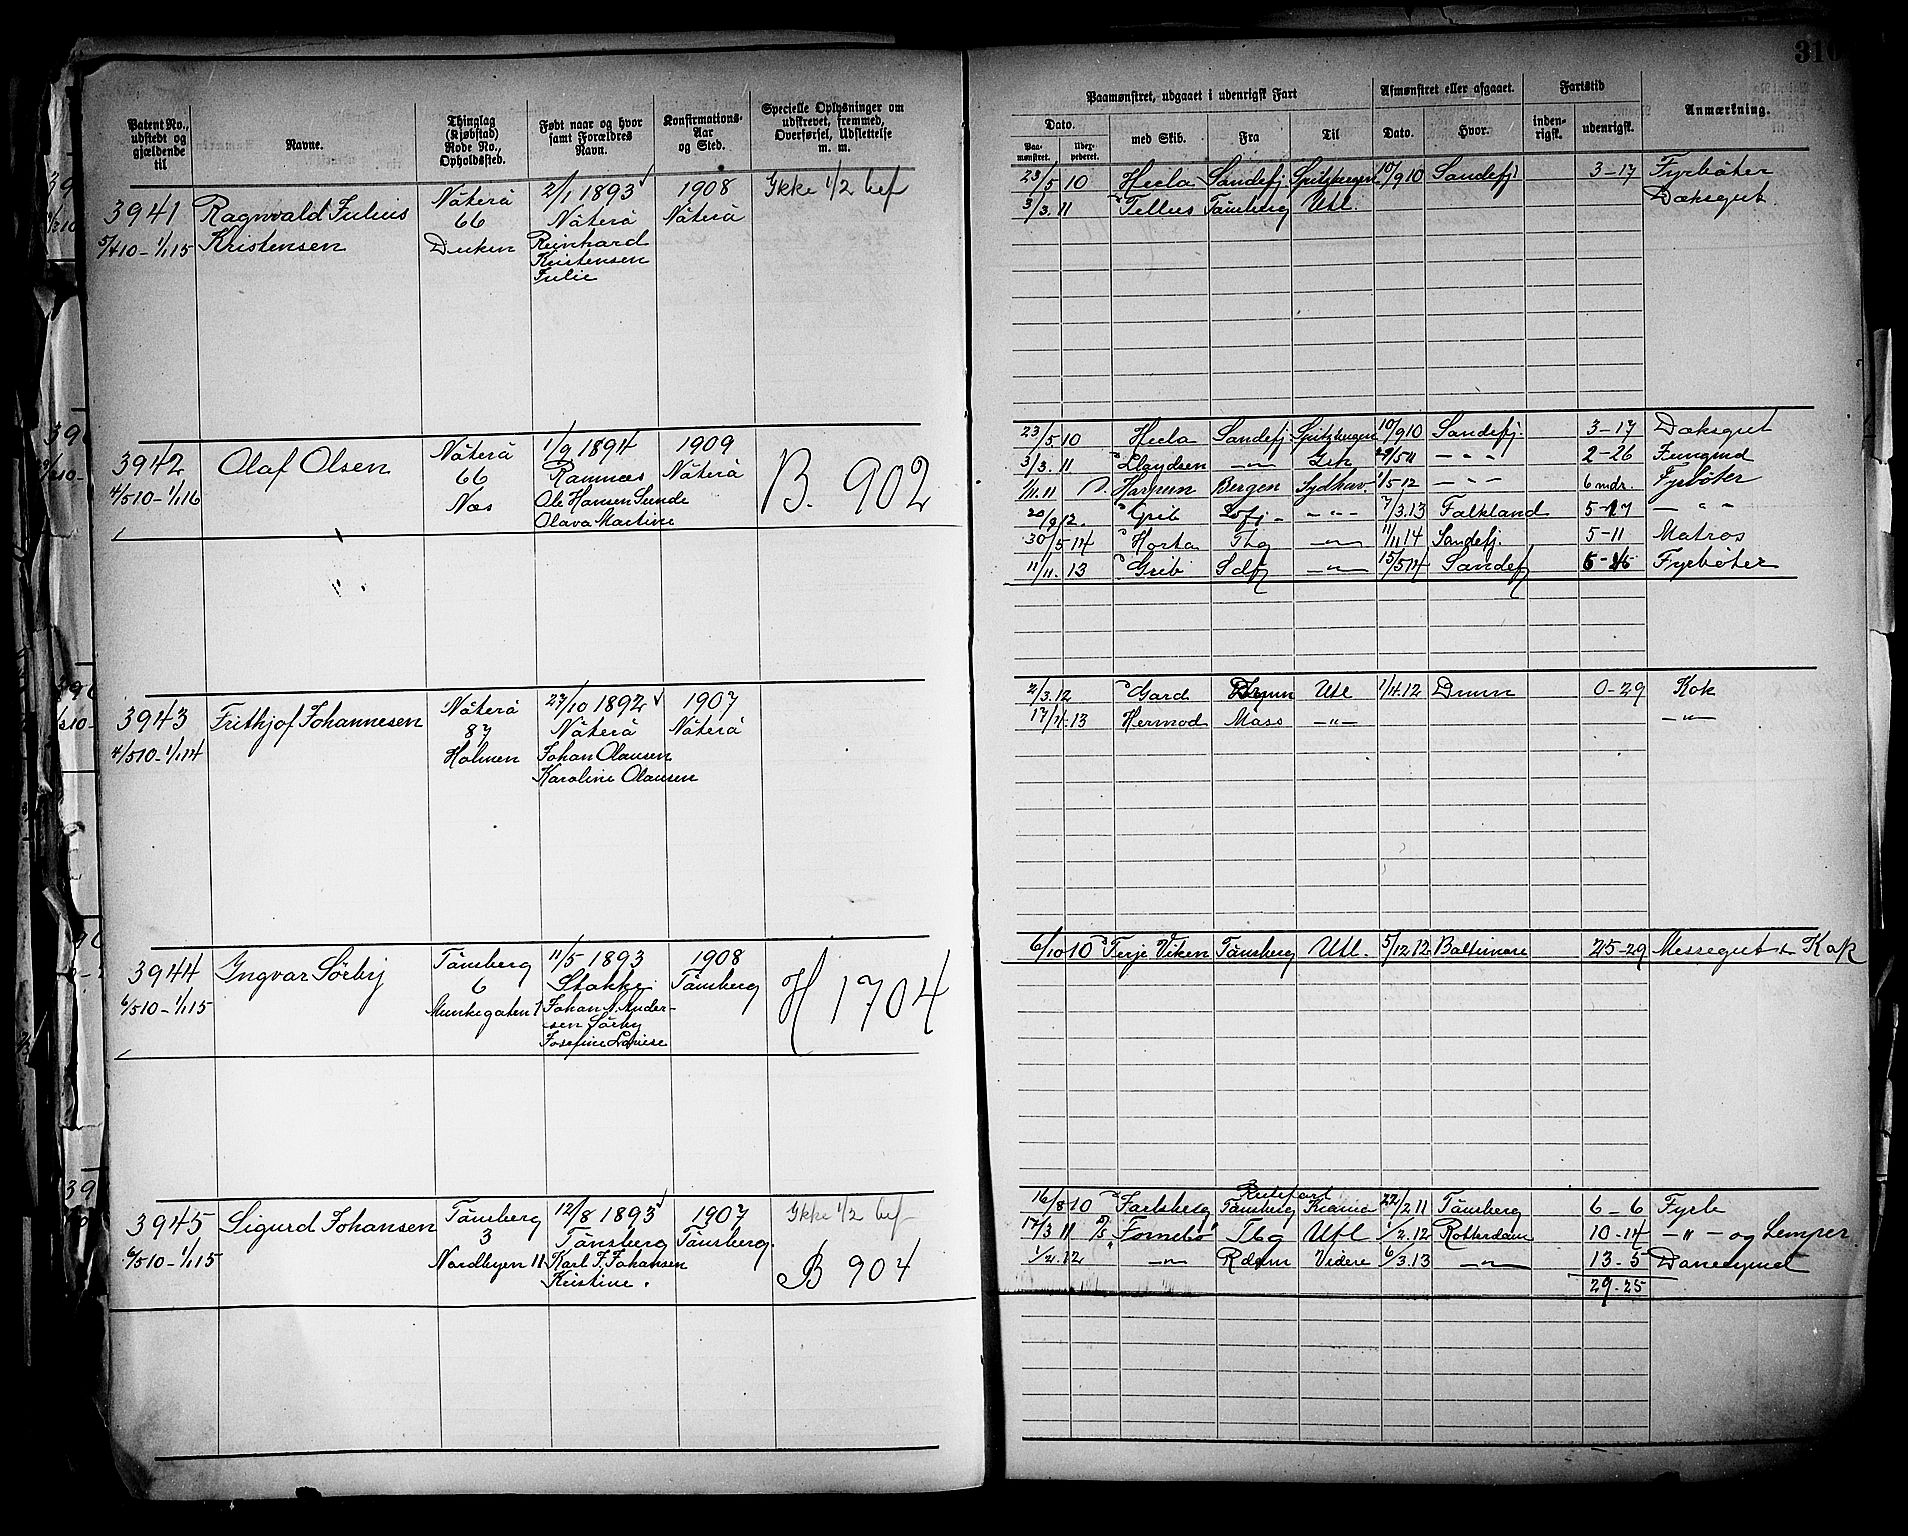 310
Patent No., udstedt og gjældende til
Navne.
Thinglag (Kjøbstad) Rode No., Opholdssted.
Født naar og hvor samt Forældres Navn.
Konfirmations-Aar og Sted.
Specielle Oplysninger om udskrevet, fremmed, Overførsel, Udslettelse m. m.
Paamønstret, udgaaet i udenrigsk Fart
Afmønstret eller afgaaet.
Fartstid
Anmærkning.
Dato.
med Skib.
Fra
Til
Dato.
Hvor.
inden-rigsk.
udenrigsk.
Paa-mønstret.
3941
5/4 10 - 1/1 15
Ragnvald Julius
Kristensen
Nøterø
66
Duken
2/1 1893
Nøterø
Reinhard
Kristensen
Julie
1908
Nøterø
Ikke 1/2 bef
23/5 10 Hecla Sandefj. Spitsbergen 10/9 10 Sandefj. 3-17 Fyrbøter
3/3 11 Tellus Tønsberg Utl. Dæksgut
3942
4/5 10 - 1/1 16
Olaf Olsen
Nøterø
66
Næs
1/9 1894
Ramnæs
Ole Hansen Sunde
Olava Martine
1909
Nøterø
B. 902
23/5 10 Hecla Sandefj. Spitsbergen 10/9 10 Sandefj. 3-17 Dæksgut
3/3. 11 -"- 2-26
1/11. 11 Harpun Bergen Sydhav. 1/5 12 - " - 6 mdr. Fyrbøter
20/9 12. Grib - " - 7/3. 13 Falkland 5-17 - " -
30/5 14 Horta Tbg -"- 11/11 14 Sandefj. 5-11 Matros
11/11. 13 Grib Sdfj -"- 15/5 14 Sandefj Fyrbøter
3943
4/5 10 - 1/1 14
Frithjof Johannesen
Nøterø
87
Holmen
27/10 1892
Nøterø
Johan Olausen
Karoline Olausen
1907
Nøterø
2/3. 12 Gard Utl 1/4. 12 Drmn 0-29 Kok
17/4. 13 Hermod Moss -"- -"-
3944
6/5 10 - 1/1 15
Ingvar Sørby
Tønsberg
6
Munkegaten 1
11/5 1893
Stokke
Johan A. Ander-
sen Sørby
Josefine Lovise
1908
Tønsberg
H 1704
6/10 10 Terje Viken Tønsberg Utl. 5/12. 12 Baltimore 25-29 Messegut & Kok
3945
6/5 10 - 1/1 15
Sigurd Johansen
Tønsberg
3
Nordbyen 11
12/8 1893
Tønsberg
Karl F. Johansen
Kristine.
1907
Tønsberg.
Ikke 1/2 bef
B 904
Rutefart
16/8 10 Jarlsberg Tønsberg Krania 22/2 11 Tønsberg 6-6 Fyrb
17/3 11 Fornebo Tbg Utl 1/2. 12 Rotterdam 10-14 -"- og Lemper
1/2. 12 -"- Rdam Videre 6/3. 13 -"- 13-5 Donkeymd
29-25